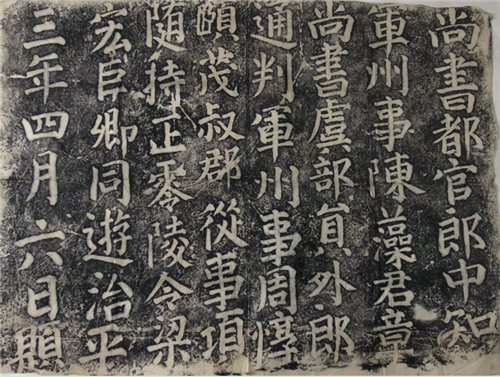 尚書都官郎中知
軍州事陳藻君章
尚書虞部貟外郎
通判軍州事周惇
頤茂叔郡從事項
随持正零陵令梁
宏巨卿同遊治平
三年四月六日題